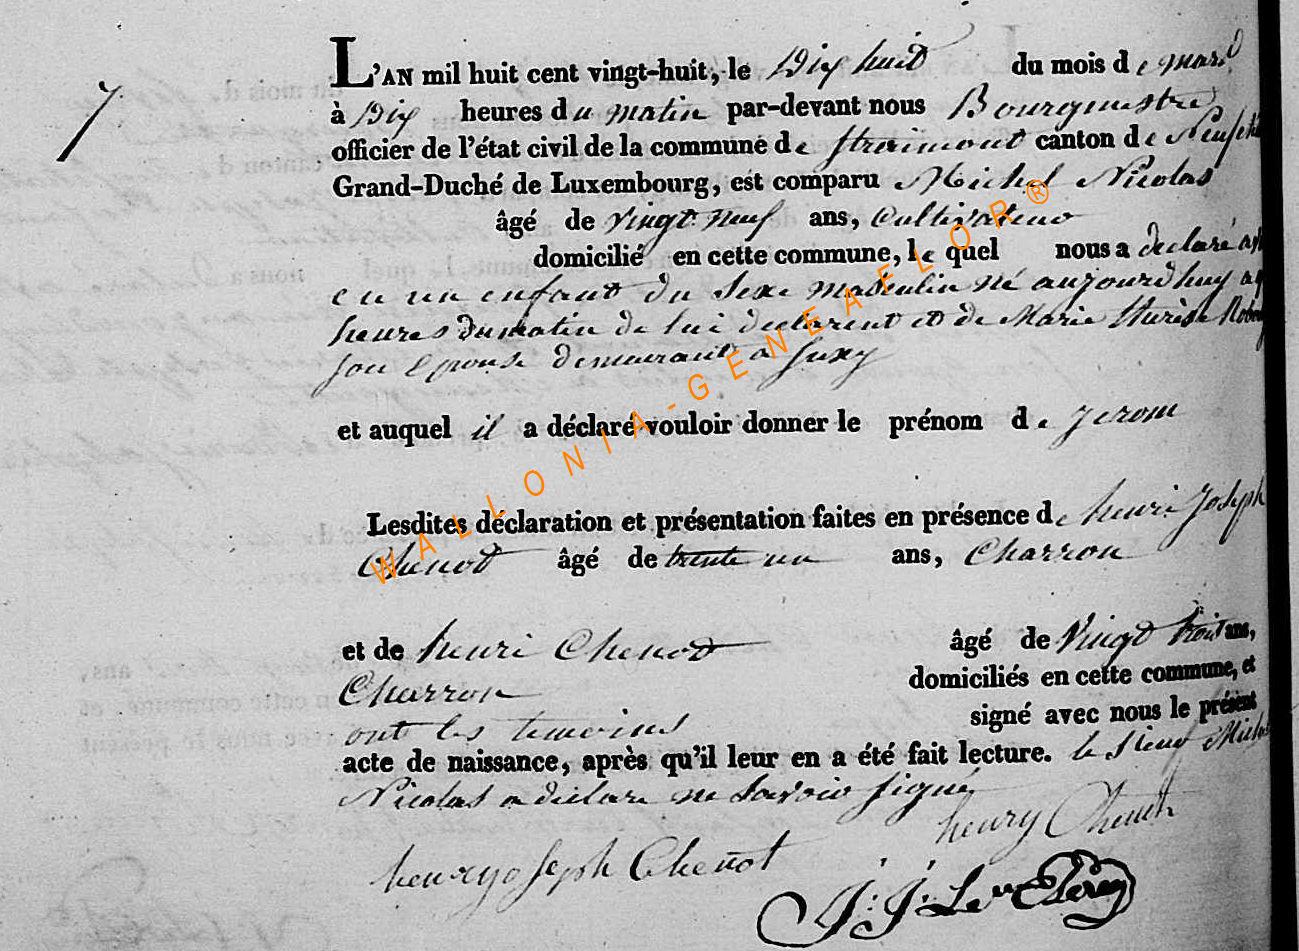 7
L'AN mil huit cent vingt-huit, le Dix huit du mois de mars
à Dix heures du matin par-devant nous Bourgmestre
officier de l'état civil de la commune de Straimont canton de
Grand-Duché de Luxembourg, est comparu Michel Nicolas
âgé de vingt neuf ans, Cultivateur
domicilié en cette commune, le quel nous a declaré
eu un enfant du Sexe masculin né aujourdhuy a
heures du matin de lui declarent et de Marie thérèse
son Epouse demeurant a Suxy
et auquel il a déclaré vouloir donner le prénom de Jerom
Lesdites déclaration et présentation faites en présence de henri Joseph
Chenot âgé de trente un ans, Charron
et de henri Chenot âgé de Vingt trois ans,
Charron domiciliés en cette commune, et
ont les temoins signé avec nous le présent
acte de naissance, après qu'il leur en a été fait lecture. le Sieur Michel
Nicolas a déclaré ne Savoir signé
henry Chenot
henry joseph Chenot
J: J:
WALLONIA-GENEAFLOR®